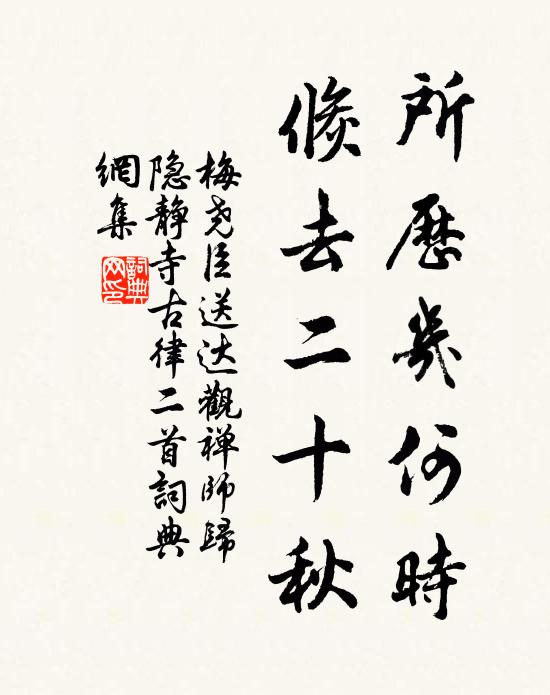 所歷幾何時
倏去二十秋
梅尧臣送达觀禅师歸
隐静寺古律二首詞典
網集
詞典
网印